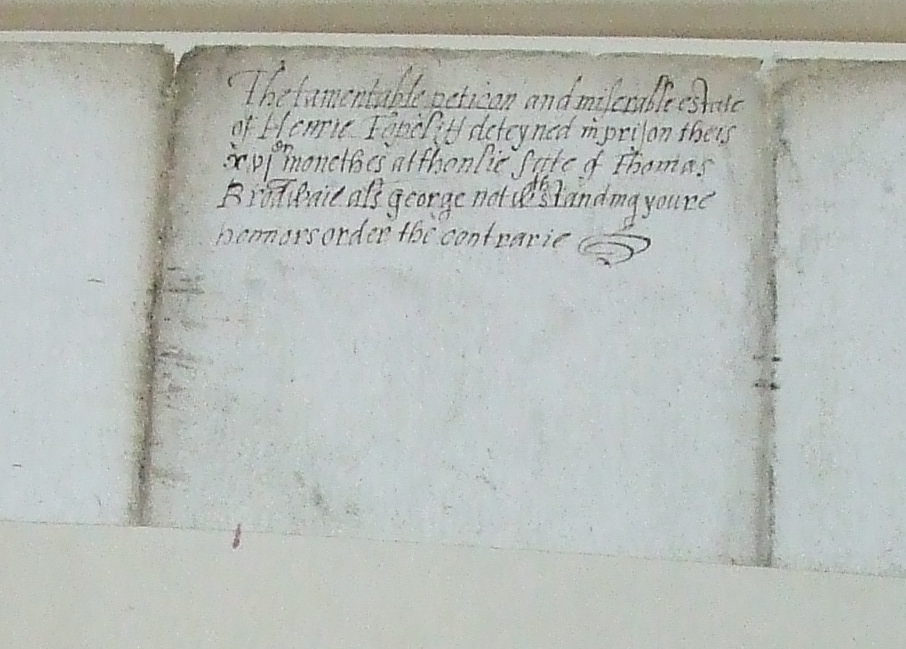 The lamentable peticon and miserable estate
of Henrie deteyned in prison theis
xvj en monethes at thonlie sute of Thomas
als george notwthstanding youre
honnors order the contrarie